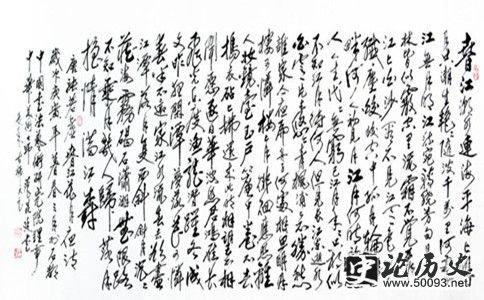 春江潮水连海平海上
明月共潮生滟滟随波千万里何处春
江无月明江流宛转绕芳甸月照花
林皆似霰空里流霜不觉飞
江上白沙看不见江天一色无
纤尘皎皎空中孤月轮江
畔何人初见月江月何时初照
人人生代代无穷已江月年年只相似
不知江月待何人但见长江送流水
白云一片去悠悠青枫浦上不胜愁
谁家今夜扁舟子何处相思明月
楼可怜楼上月徘徊应照离
人妆镜台玉户帘中卷不去
捣衣砧上拂还来此时相望不相
闻愿逐月华流照君鸿雁长
飞光不度鱼龙潜跃水成
文昨夜闲潭梦落花可怜
春半不还家江水流春去欲尽
江潭落月复西斜斜月沉沉
藏海雾碣石潇湘无限路
不知乘月几人归落月
摇情满江树
唐张若虚春江花月夜
中国书法艺术研究院理事
论历史
www.50093.net